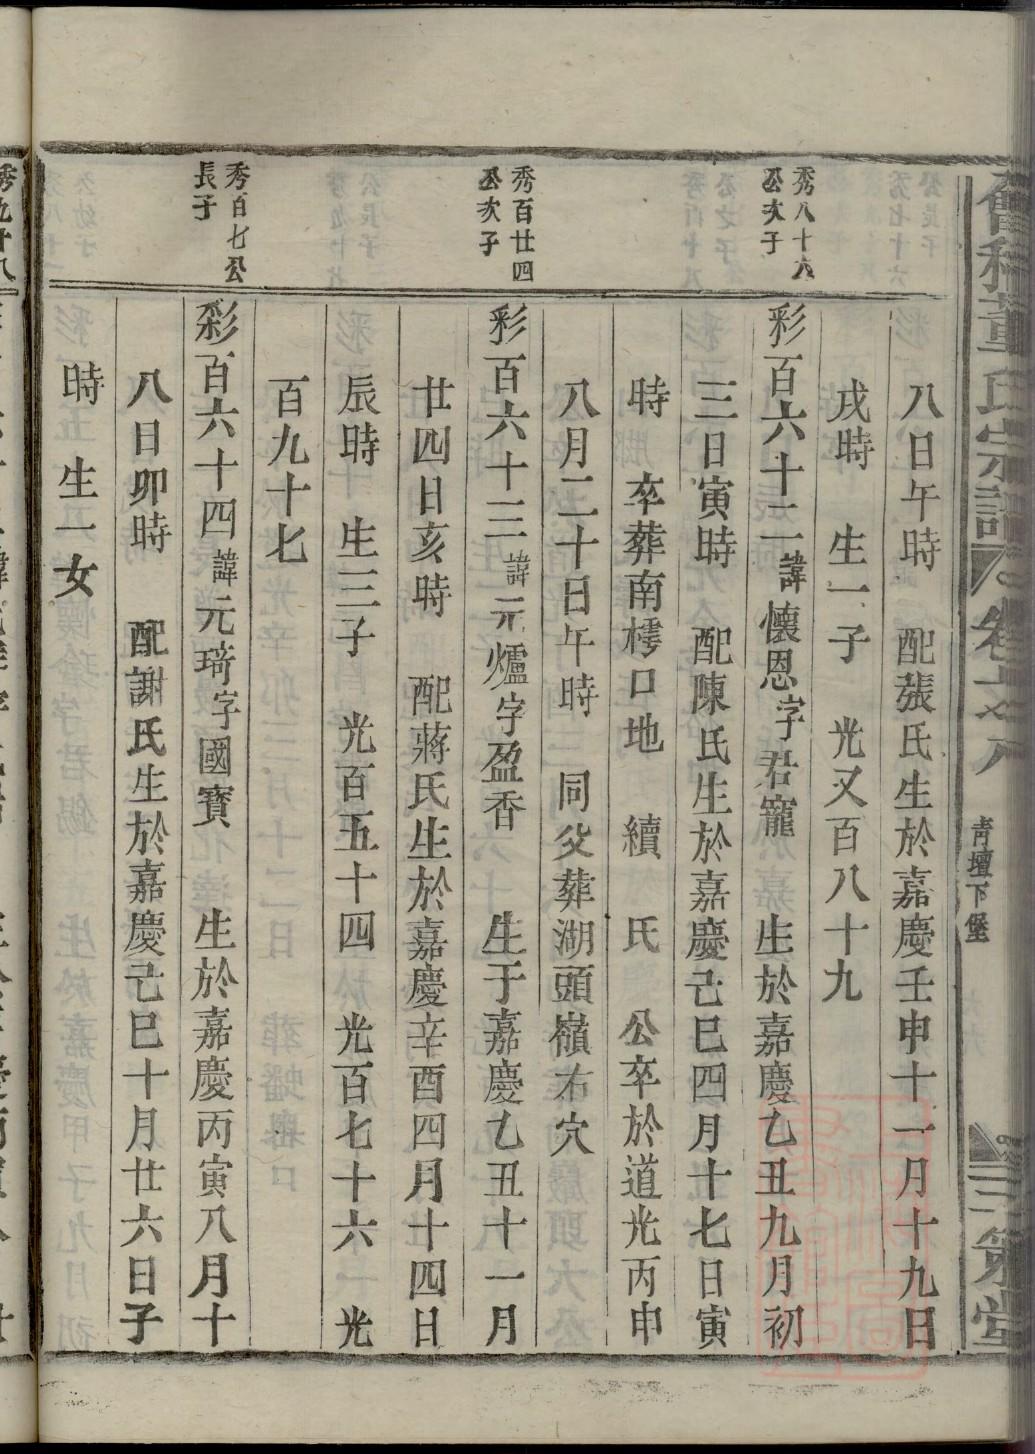 董氏宗譜
卷
青壇下堡
三策堂
八日午時 配張氏生於嘉慶壬申十一月十九日
戌時 生一子 光又百八十九
秀八十六
公次子
彩百六十二諱懷恩字君寵 生於嘉慶乙丑九月初
三日寅時 配陳氏生於嘉慶己巳四月十七日寅
時 卒葬南樗口地 續 氏 公卒於道光丙申
八月二十日午時 同父葬湖頭嶺右穴
秀百廿四
公次子
彩百六十三諱元爐字盈香 生于嘉慶乙丑十一月
廿四日亥時 配蔣氏生於嘉慶辛酉四月十四日
辰時 生三子 光百五十四 光百七十六 光
百九十七
秀百七公
長子
彩百六十四諱元琦字國寶 生於嘉慶丙寅八月十
八日卯時 配謝氏生於嘉慶己巳十月廿六日子
時 生一女